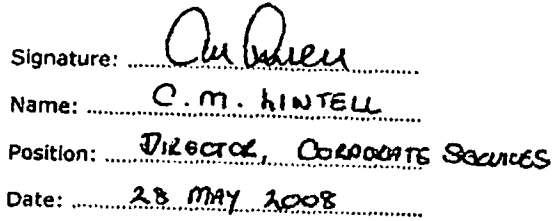 Signature:
Name: C. M. LINTELL
Position: DIRECTOR, CORPORATE SERVICES
Date: 28 MAY 2008